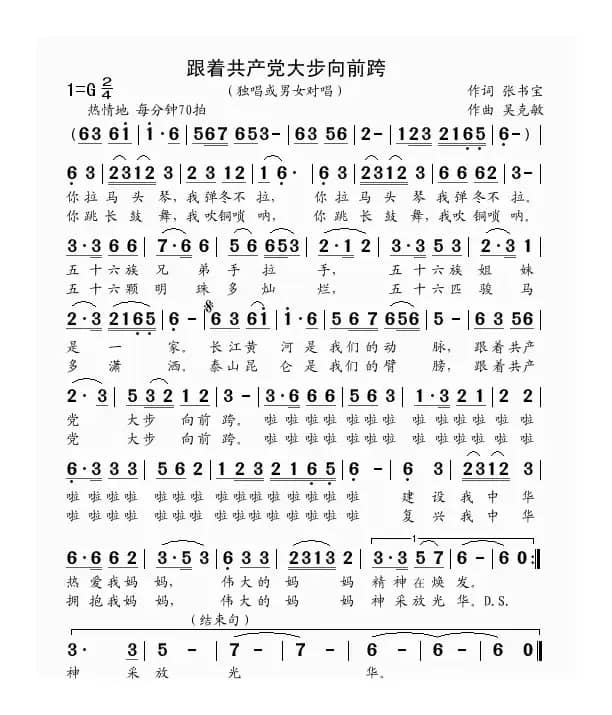 跟着共产党大步向前跨
1=G 2/4
（独唱或男女对唱）
作词 张书宝
热情地 每分钟70拍
作曲 吴克敏
(63 61 | 1·6 | 567 653· | 63 56 | 2- | 123 2165 | 6- ) |
6 3 | 2312 3 | 2 3 12 | 1 6· | 6 3 | 2312 3 | 6 65 12 | 3- |
你拉马头琴，我弹冬不拉，你拉马头琴我弹冬不拉，
你跳长鼓舞，我吹铜唢呐，你跳长鼓舞，我吹铜唢呐。
3·3 6 6 | 7·6 6 | 5 6 653 | 2·1 2 | 3·3 5 3 | 2·3 1 |
五十六族兄弟手拉手，五十六族姐妹
五十六颗明珠多灿烂，五十六匹骏马
2·3 2165 | 6 - | 6 3 61 | 1·6 | 5 6 7 656 | 2 - | 6 3 56 |
是一家。长江黄河是我们的动脉，跟着共产
多潇洒。泰山昆仑是我们的臂膀，跟着共产
2· 3 | 5 32 1 2 | 3 - | 3·6 6 6 | 5 6 3 | 1·3 2 1 | 2 2 |
党大步向前跨。啦啦啦啦啦啦啦啦啦啦啦啦
党大步向前跨。啦啦啦啦啦啦啦啦啦啦啦啦
6·3 3 3 | 5 6 2 | 1 2 3 2 1 6 5 | 6 - | 6 3 | 2312 3 |
啦啦啦啦啦啦啦啦啦啦啦啦啦建设我中华
啦啦啦啦啦啦啦啦啦啦啦啦啦复兴我中华
6·6 6 2 | 3·5 3 | 6 3 3 | 2313 2 | 3·3 5 7 | 6 - | 6 0 :‖
热爱我妈妈，伟大的妈妈精神在焕发。
拥抱我妈妈，伟大的妈妈神采放光华。D.S.
（结束句）
3· 3 | 5 - | 7 - | 7 - | 6 - | 6 - | 6 - | 6 0 ‖
神采放光华。